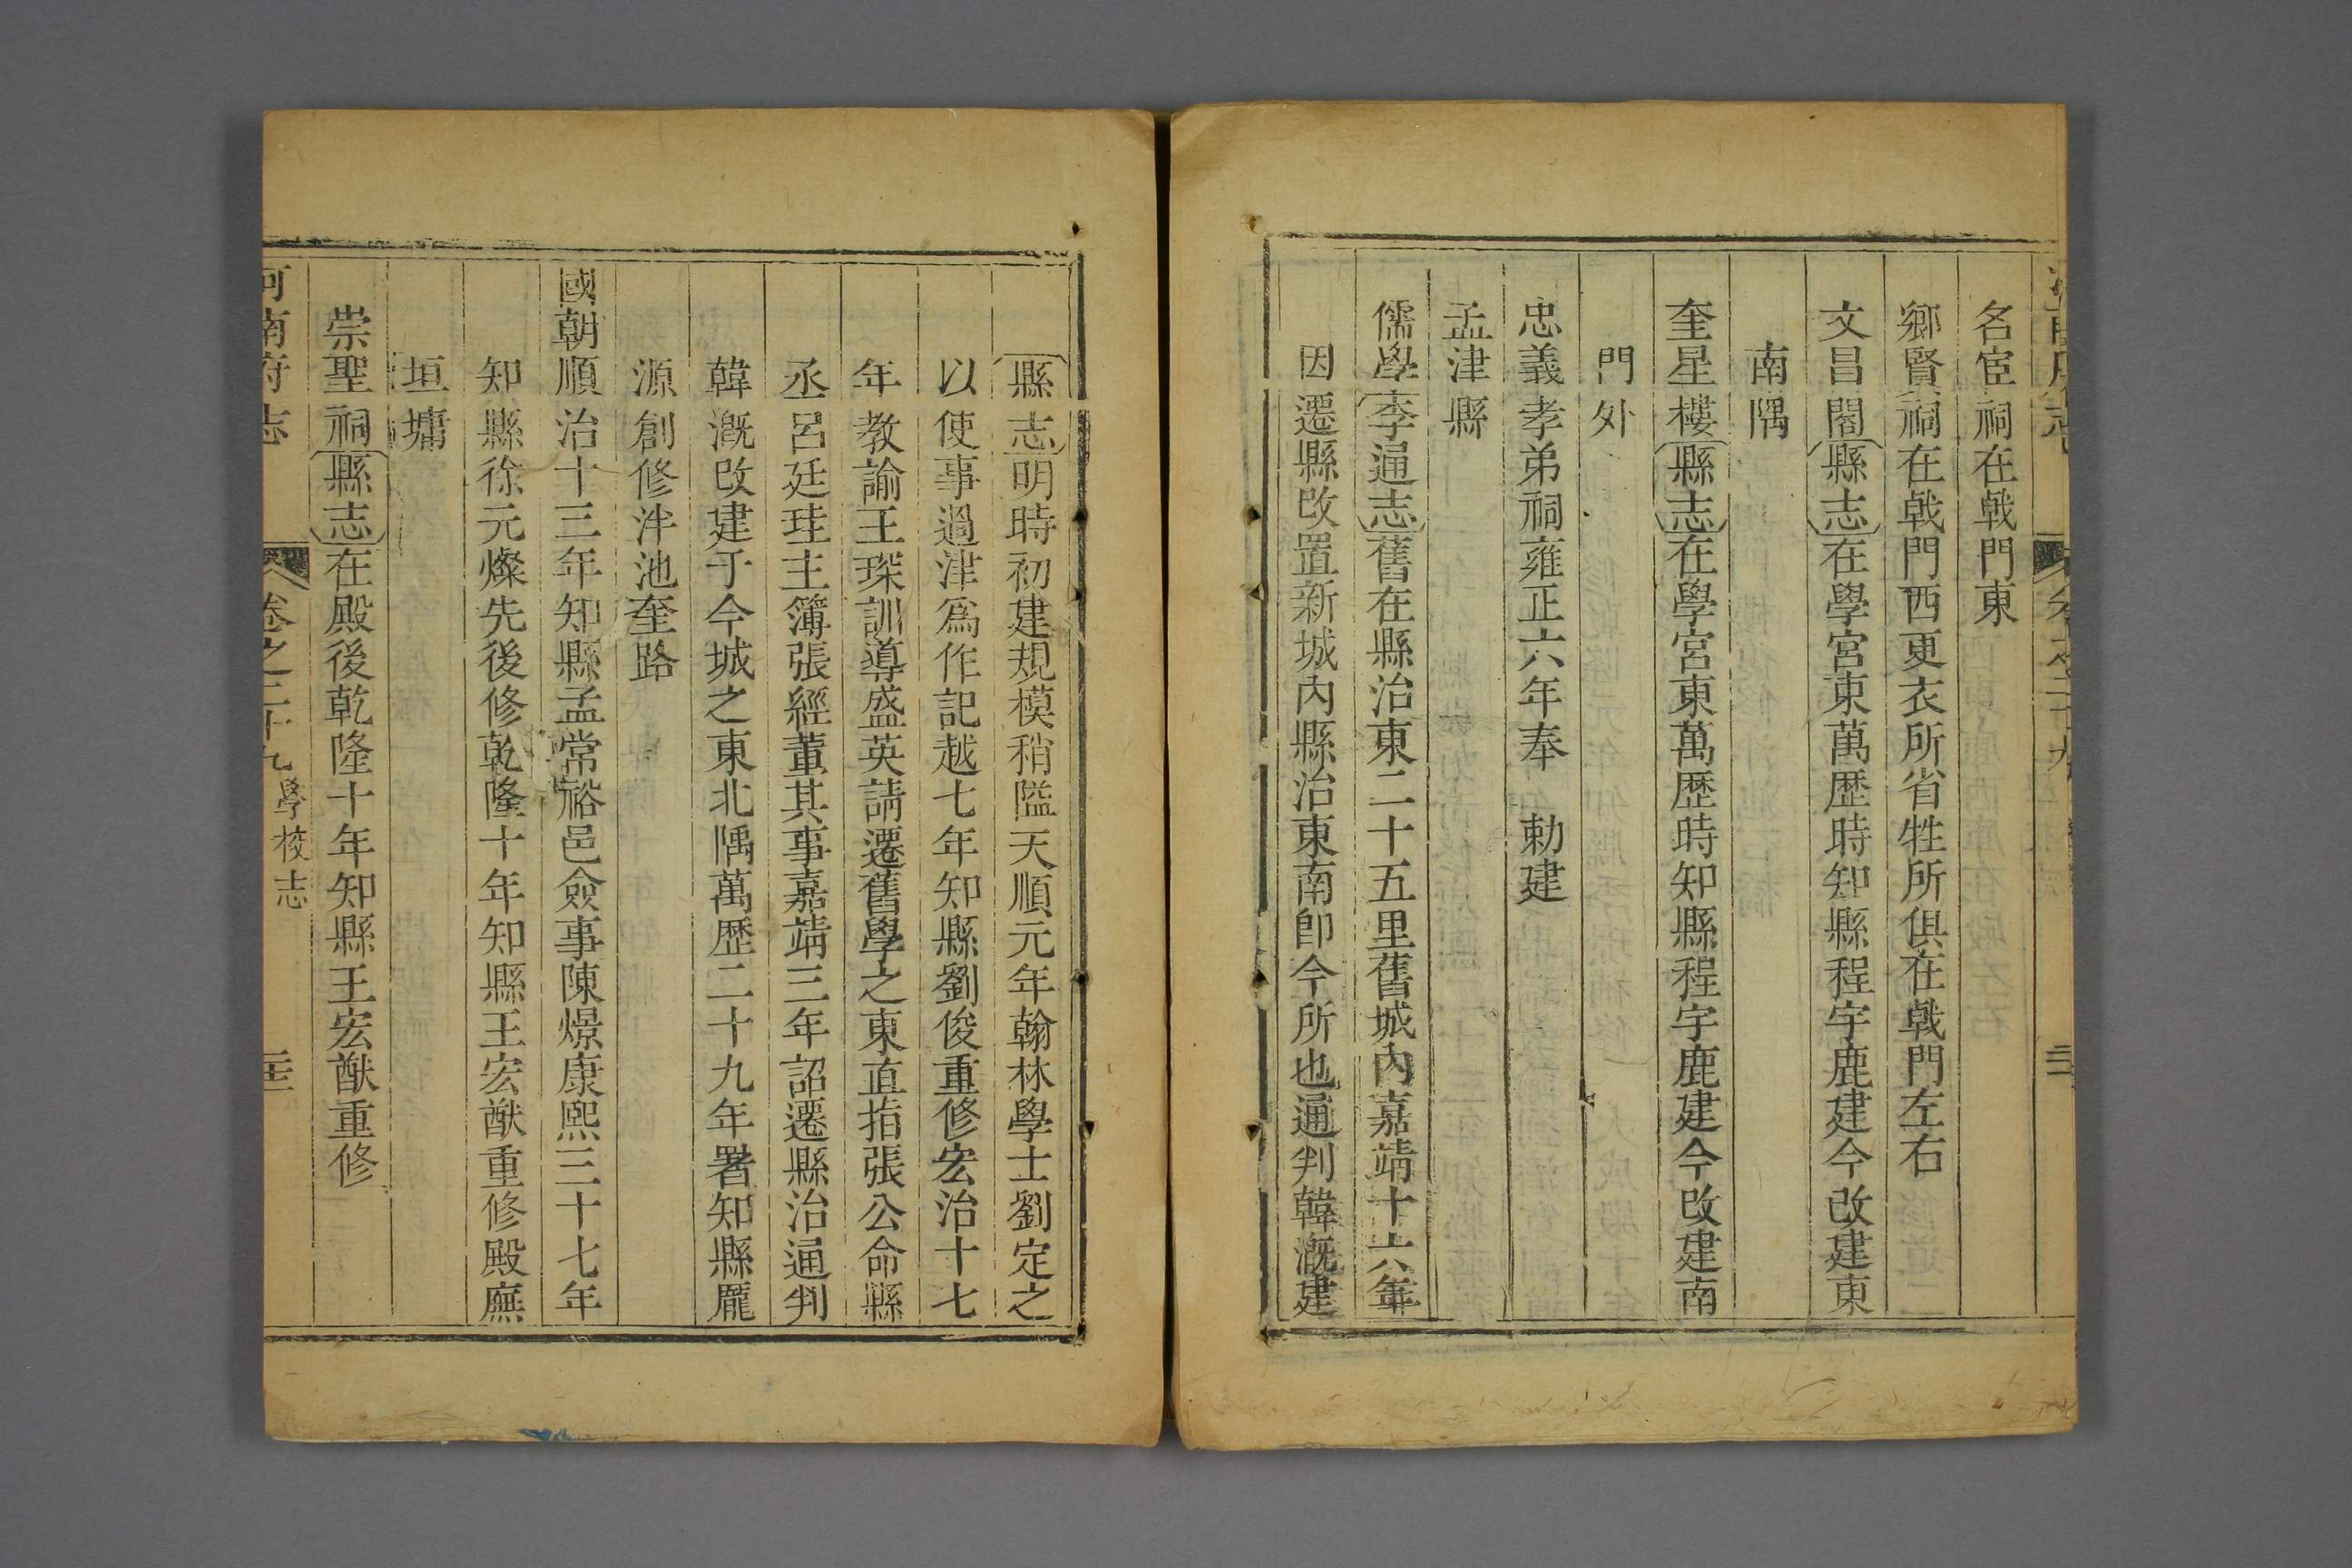 名宦祠在戟門東
鄉賢祠在戟門西更衣所省牲所俱在戟門左右
文昌閣縣志在學宮東萬歷時知縣程宇鹿建今改建東
南隅
奎星樓縣志在學宮東萬歷時知縣程宇鹿建今改建南
門外
忠義孝弟祠雍正六年奉　勅建
孟津縣
儒學李通志舊在縣治東二十五里舊城內嘉靖十六年
因遷縣改置新城內縣治東南卽今所也通判韓漑建
縣志明時初建規模稍隘天順元年翰林學士劉定之
以使事過津爲作記越七年知縣劉俊重修宏治十七
年教諭王琛訓導盛英請遷舊學之東直指張公命縣
丞呂廷珪主簿張經董其事嘉靖三年詔遷縣治通判
韓漑改建于今城之東北隅萬歷二十九年署知縣龎
源創修泮池奎路
國朝順治十三年知縣孟常裕邑僉事陳燝康熙三十七年
知縣徐元燦先後修乾隆十年知縣王宏猷重修殿廡
垣墉
崇聖祠縣志在殿後乾隆十年知縣王宏猷重修
河南府志　卷之二十九　學校志